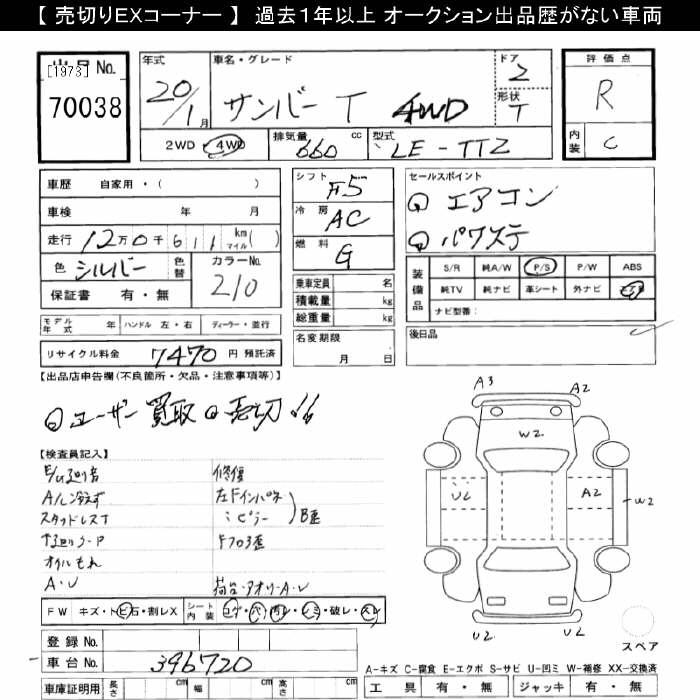 【 売切りEXコーナー 】 過去１年以上 オークション出品歴がない車両
出品No.
[1973]
70038
年式
20/1月
車名・グレード
サンバー T 4WD
ドア
2
形状
T
評価点
R
内装
C
2WD・4WD
排気量 660 cc
型式 LE-TT2
車歴 自家用・( )
車検 年 月
走行 12万0千611 km マイル( )
色 シルバー 色替
カラーNo. 210
保証書 有・無
シフト F5
冷房 AC
燃料 G
乗車定員 名
積載量 kg
総重量 kg
名変期限 月 日
セールスポイント
エアコン
パワステ
装備品 S/R 純A/W P/S P/W ABS
純TV 純ナビ 革シート 外ナビ エアB
ナビ型番:
後日品
モデル年式 年 ハンドル 左・右 ディーラー・並行
リサイクル料金 7470 円 預託済
【出品店申告欄(不良箇所・欠品・注意事項等)】
ユーザー買取 売切!!
【検査員記入】
修復
スタッドレスT
左Fインパネ
〃ピラー B歪
オイルもれ
A・U
荷台・アオリ-A・U
FW キズ・トビ石・割レX
シート内装 コゲ・穴・汚レ・シミ・破レ・スレ
登録No.
車台No. 396720
車庫証明用 長さ cm 幅 cm 高さ cm
A3
A2
W2
U2
A2
W2
U2
U2
スペア
A-キズ C-腐食 E-エクボ S-サビ U-凹ミ W-補修 XX-交換済
工具 有・無 ジャッキ 有・無